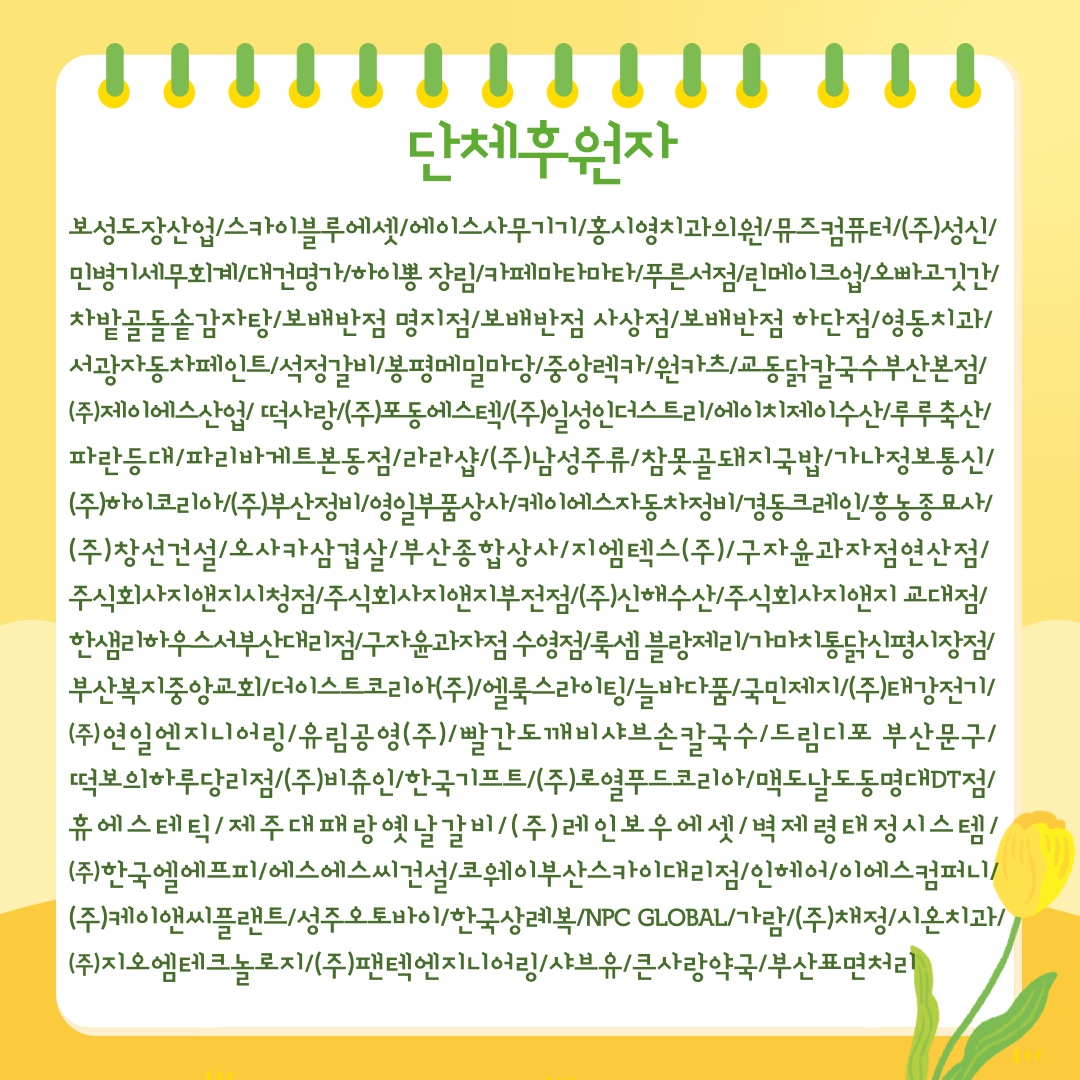 단체후원자
보성도장산업/스카이블루에셋/에이스사무기기/홍시영치과의원/뮤즈컴퓨터/(주)성신/
민병기세무회계/대건명가/하이뽕 장림/카페마타마타/푸른서점/린메이크업/오빠고깃간/
차밭골돌솥감자탕/보배반점 명지점/보배반점 사상점/보배반점 하단점/영동치과/
서광자동차페인트/석정갈비/봉평메밀마당/중앙렉카/원카츠/교동닭칼국수부산본점/
(주)제이에스산업/ 떡사랑/(주)포동에스텍/(주)일성인더스트리/에이치제이수산/루루축산/
파란등대/파리바게트본동점/라라샵/(주)남성주류/참못골돼지국밥/가나정보통신/
(주)하이코리아/(주)부산정비/영일부품상사/케이에스자동차정비/경동크레인/흥농종묘사/
(주)창선건설/오사카삼겹살/부산종합상사/지엠텍스(주)/구자윤과자점연산점/
주식회사지앤지시청점/주식회사지앤지부전점/(주)신해수산/주식회사지앤지 교대점/
한샘리하우스서부산대리점/구자윤과자점 수영점/룩셈 블랑제리/가마치통닭신평시장점/
부산복지중앙교회/더이스트코리아(주)/엘룩스라이팅/늘바다품/국민제지/(주)태강전기/
(주)연일엔지니어링/유림공영(주)/빨간도깨비샤브손칼국수/드림디포 부산문구/
떡보의하루당리점/(주)비츄인/한국기프트/(주)로열푸드코리아/맥도날도동명대DT점/
휴에스테틱/제주대패랑옛날갈비/(주)레인보우에셋/벽제령태정시스템/
(주)한국엘에프피/에스에스씨건설/코웨이부산스카이대리점/인헤어/이에스컴퍼니/
(주)케이앤씨플랜트/성주오토바이/한국상례복/NPC GLOBAL/가람/(주)채정/시온치과/
(주)지오엠테크놀로지/(주)팬텍엔지니어링/샤브유/큰사랑약국/부산표면처리